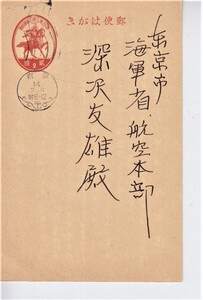 郵便はがき
東京市
海軍省航空本部
深沢友雄殿